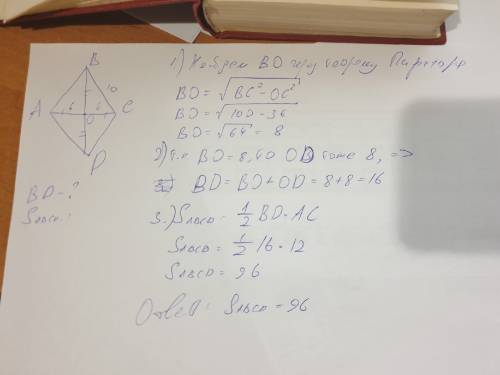 B
10
A 6 6 C
O
D
BD - ?
SABCD - ?
1) Найдем BO через теорему Пифагора
BO = √BC² - OC²
BO = √100 - 36
BO = √64 = 8
2) т.к BO = 8, то OD тоже 8, =>
BD = BO + OD = 8+8 = 16
3.) SABCD = 1/2 BD · AC
SABCD = 1/2 16 · 12
SABCD = 96
Ответ: SABCD = 96